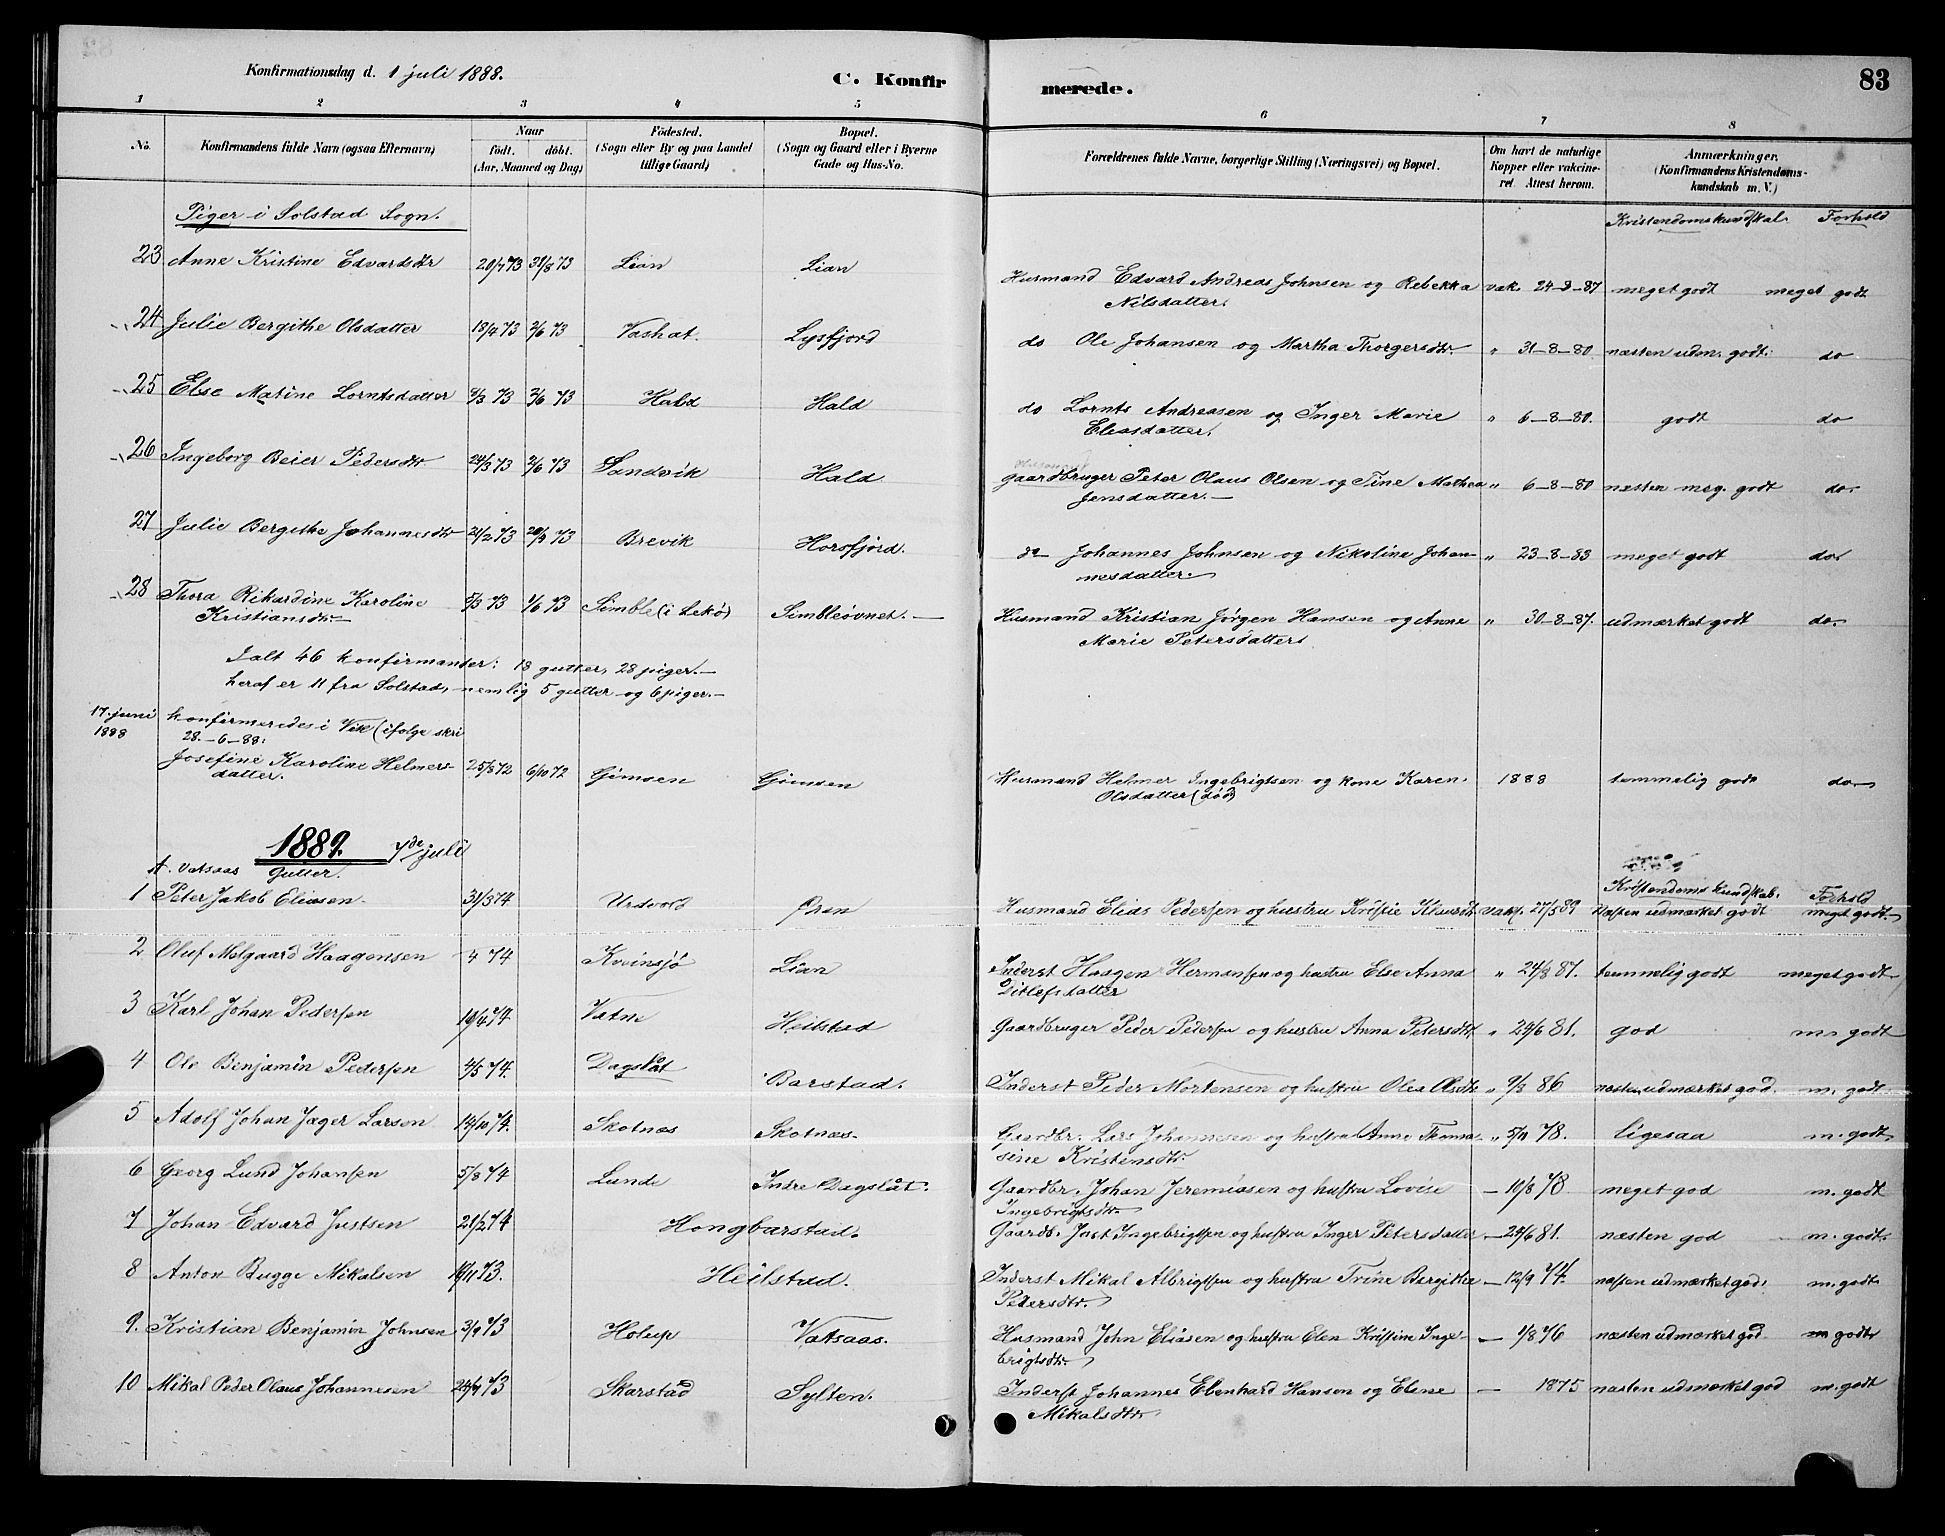 Konfirmationsdag d. 1 juli 1888.
C. Konfirmerede.
83
1 2 3 4 5 6 7 8
No.
Konfirmandens fulde Navn (ogsaa Efternavn)
Naar
født. døbt.
(Aar, Maaned og Dag)
Födested.
(Sogn eller By og paa Landet
tillige Gaard)
Bopæl.
(Sogn og Gaard eller i Byerne
Gade og Hus-No.
Forældrenes fulde Navne, borgerlige Stilling (Næringsvei) og Bopæl.
Om havt de naturlige
Kopper eller vakcine-
ret. Attest herom.
Anmærkninger.
(Konfirmandens Kristendoms-
kundskab m. V.)
Piger i Solstad Sogn.
Kristendomskundskab. Forhold
23 Anne Kristine Edvardsdtr 20/7 73 31/8 73 Lian Lian Husmand Edvard Andreas Johnsen og Rebekka vak. 24-8-87 meget godt meget godt
Nilsdatter.
24 Julie Bergithe Olsdatter 13/4 73 2/6 73 Vashat. Lysfjord do Ole Johansen og Martha Thorgersdtr. " 31-8-80 næsten udm. godt. do
25 Else Matine Lorntsdatter 9/3 73 2/6 73 Hald Hald do Lornts Andreasen og Inger Marie " 6-8-80. godt do
Eliasdatter.
26 Ingeborg Beier Pedersdtr. 24/3 73 2/6 73 Sandvik Hald Gaardbruger Peter Olaus Olsen og Tine Mathea " 6-8-80 næsten meg. godt do.
Jensdatter.—
27 Julie Bergithe Johannesdtr 21/2 73 Brevik Horsfjord. do Johannes Johnsen og Nikoline Johan- " 23-8-83 meget godt do.
nesdatter.
28 Thora Rikardine Karoline 5/3 73 1/6 73 Simble (i Lekø) Simbleøvnet.— Husmand Kristian Jørgen Hansen og Anne " 30-8-87. udmærket godt do.
Kristiansdtr.— Marie Petersdatter.
Ialt 46 konfirmander: 18 gutter, 28 piger.—
heraf er 11 fra Solstad, nemlig 5 gutter og 6 piger.—
17. juni konfirmeredes i Vik (ifølge skri
1888 28.-6-88:
Josefine Karoline Helmers- 25/8 72 6/10 72 Gimsen Gimsen Husmand Helmer Ingebrigtsen og kone Karen 1888 temmelig godt do
datter. Olsdatter (død)
1889. 7de juli
A. Vatsaas Gutter. Kristendomskundskab. Forhold
1 Peter Jakob Eliasen 31/3 74 Urdvold Øren Husmand Elias Pedersen og hustru vakс. 27/5 89 Næsten udmærket godt meget godt.
2 Oluf Melgaard Haagensen 74 Kvinsjø Lian Inderst Haagen Hermansen og hustru Else Anna " 24/8 87. temmelig godt meget godt
Ditlefsdatter
3 Karl Johan Pedersen 19/4 74 Vatne Heilstad Gaardbruger Peder Pedersen og hustru Anna Petersdtr " 24/6 81. god m. godt
4 Ole Benjamin Pedersen 4/5 74. Dagslåt Barstad. Inderst Peder Mortensen og hustru Olea Olsdtr " 9/3 86 næsten udmærket god. m. godt.
5 Adolf Johan Jager Larsen 14/10 74. Skotnæs Skotnæs. Gaardbr. Lars Johannesen og hustru Anne Thoma- " 5/11 78. ligesaa m. godt
sine Kristensdtr.
6 Georg Lund Johansen 5/8 74 Lunde Indre Dagslåt. Gaardbr. Johan Jeremiasen og hustru Lovise — 10/8 78 meget god m. godt
Ingebrigtsdtr.
7 Johan Edvard Justsen 21/2 74 Hongbarstad. Gaardb. Just Ingebrigtsen og hustru Inger Petersdatter — 24/6 81. næsten god m. godt.
8 Anton Bugge Mikalsen 19/11 73. Heilstad. Inderst Mikal Albrigtsen og hustru Trine Bergitha — 12/9 74. næsten udmærket god. m. godt
Pedersdtr.
9. Kristian Benjamin Johnsen 3/9 73 Holup Vatsaas. Husmand John Eliasen og hustru Elen Kristine Inge- — 1/8 76 næsten udmærket god m godt
brigtsdtr.
10 Mikal Peder Olaus Johannesen 73 Skarstad Sylten. Inderst Johannes Ebenhard Hansen og Elene — 1875 næsten udmærket god m. godt
Mikalsdtr.